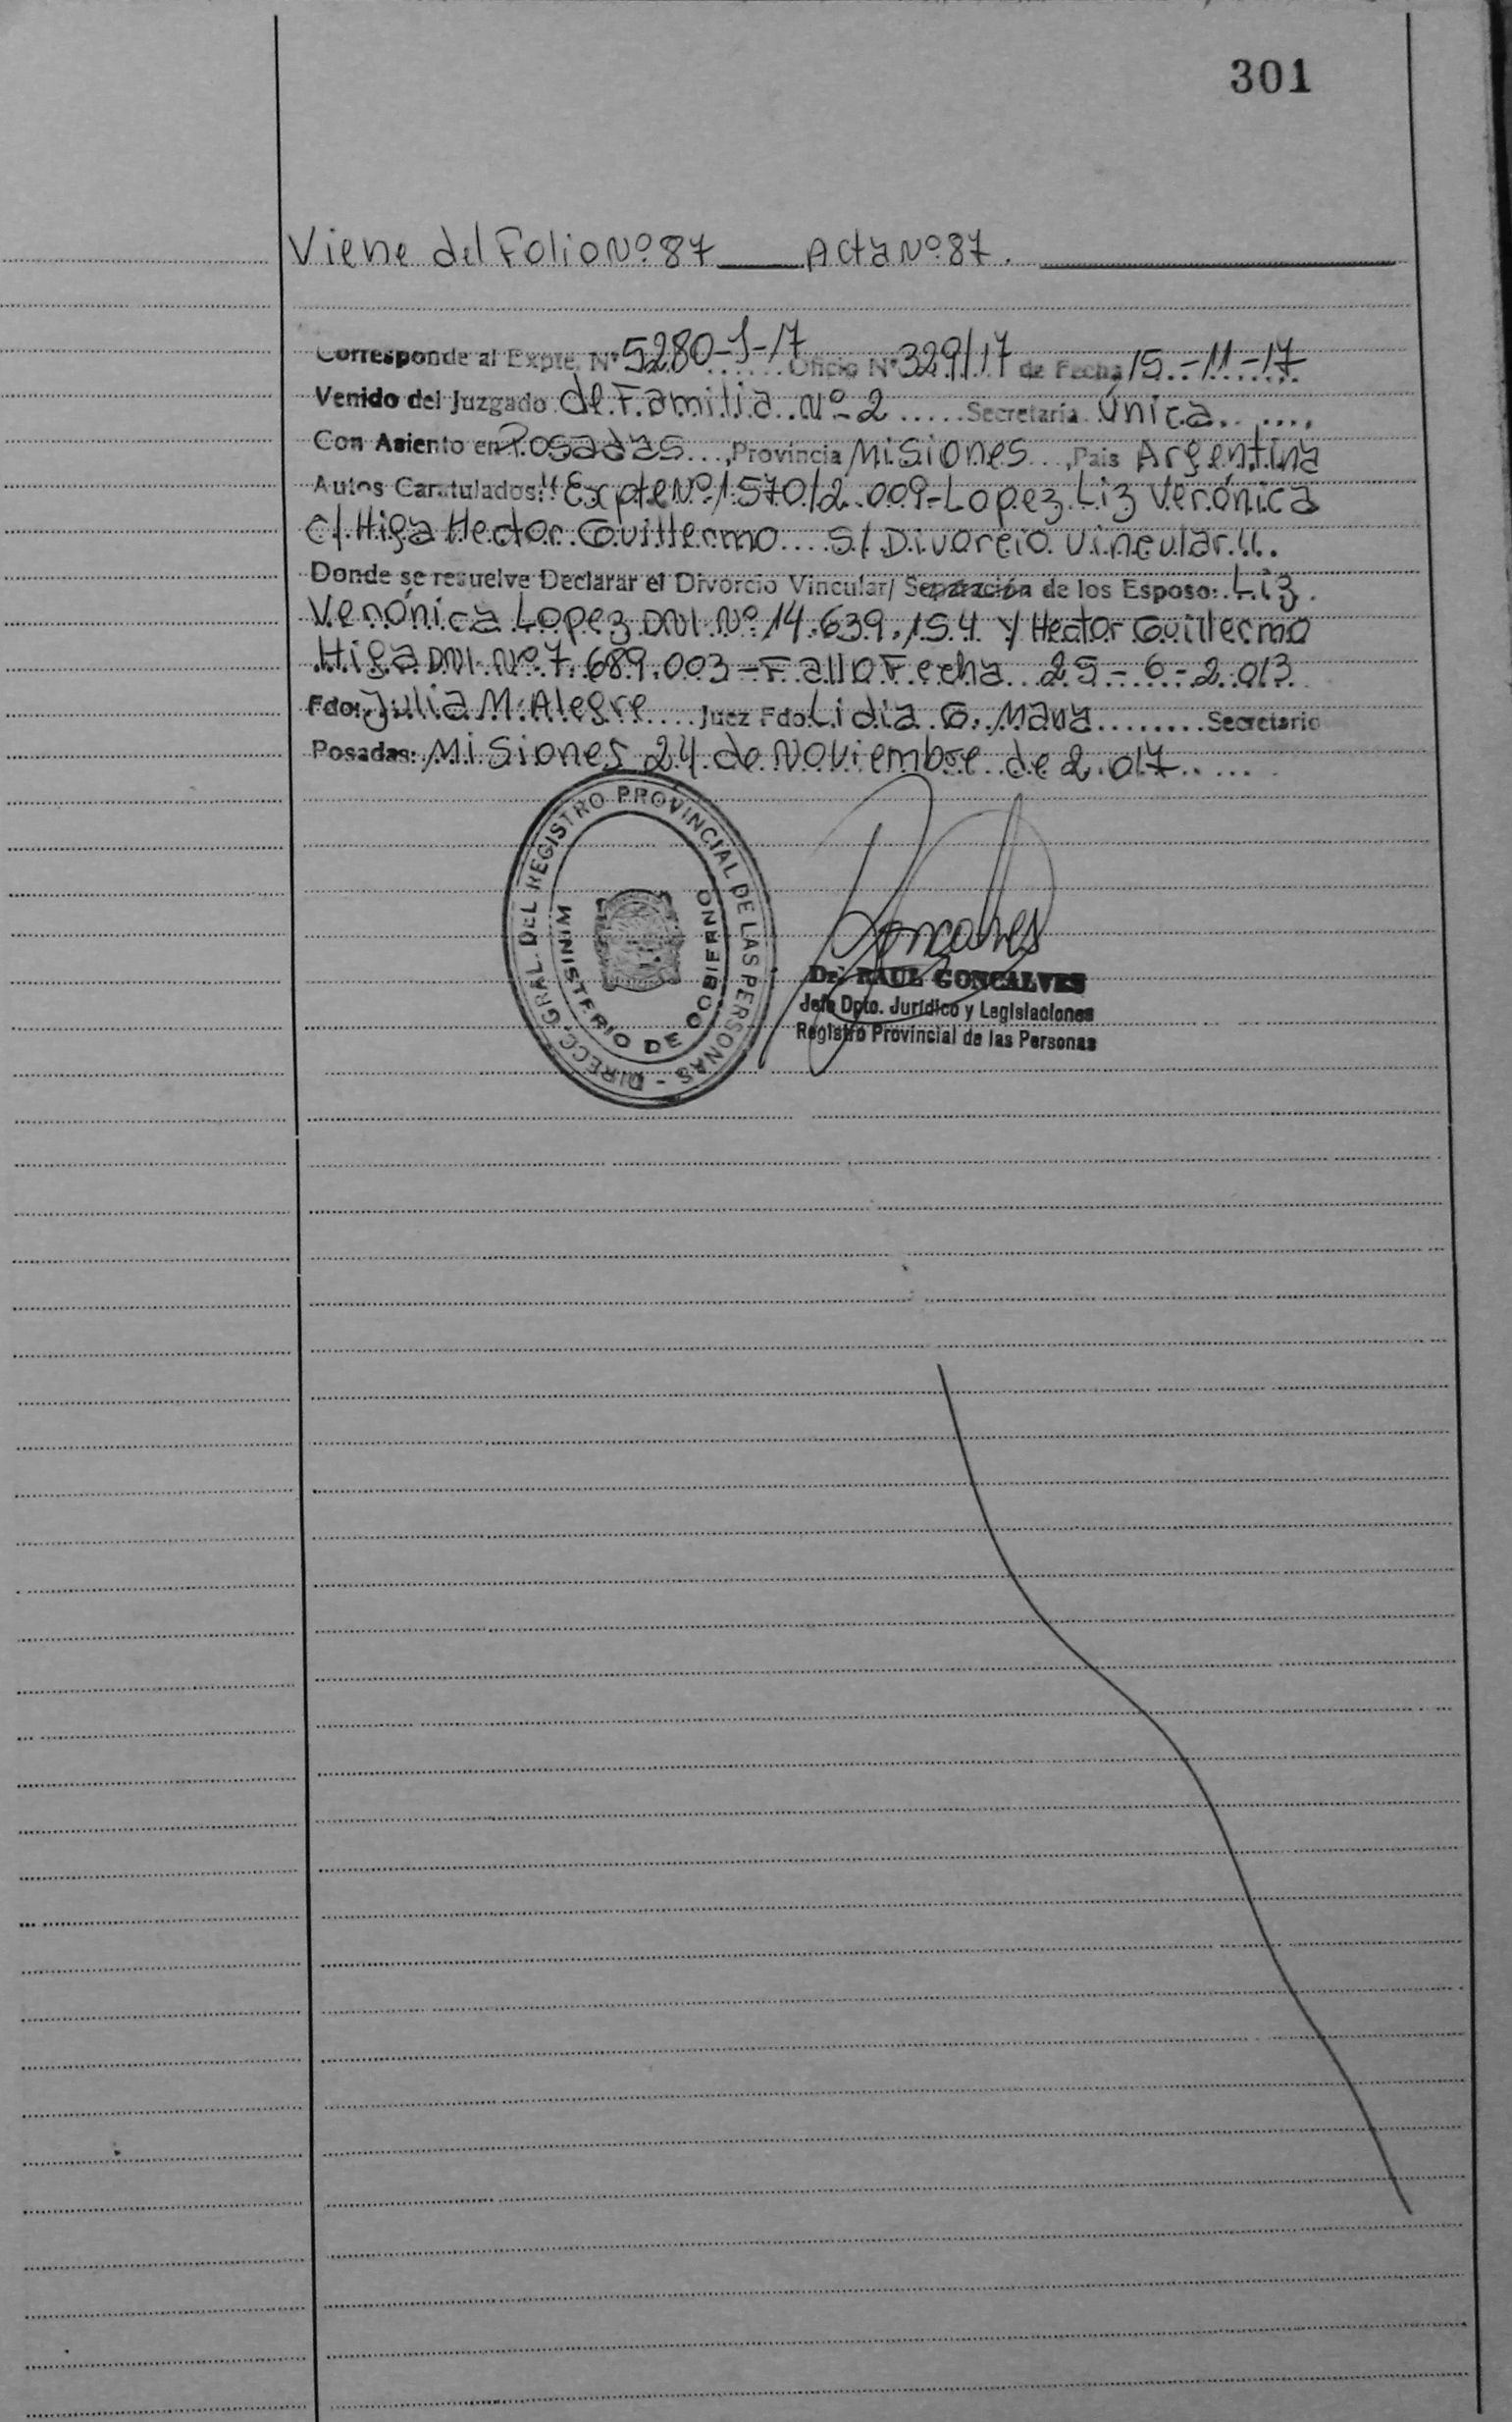 301
Viene del Folio Nº 87 ____ Acta Nº 87.
Corresponde al Expte. Nº 5280-J-17 Oficio Nº 329/17 de Fecha 15-11-17
Venido del Juzgado de Familia Nº 2 ..... Secretaria Única
Con Asiento en Posadas..., Provincia Misiones..., Pais Argentina
Autos Caratulados: "Expte Nº 1570/2.009-Lopez Liz Verónica
c/ Higa Hector Guillermo s/ Divorcio Vincular".
Donde se resuelve Declarar el Divorcio Vincular/ Separación de los Esposo: Liz
Verónica Lopez DNI Nº 14.639.154 y Hector Guillermo
Higa DNI Nº 7.689.003-Fallo Fecha 25-6-2.013
Fdo: Julia M. Alegre.... Juez Fdo: Lidia G. Mana........ Secretario
Posadas: Misiones 24 de Noviembre de 2.017
DIRECC. GRAL. DEL REGISTRO PROVINCIAL DE LAS PERSONAS -
MINISTERIO DE GOBIERNO
Goncalves
Dr. RAUL GONCALVES
Jefe Dpto. Jurídico y Legislaciones
Registro Provincial de las Personas